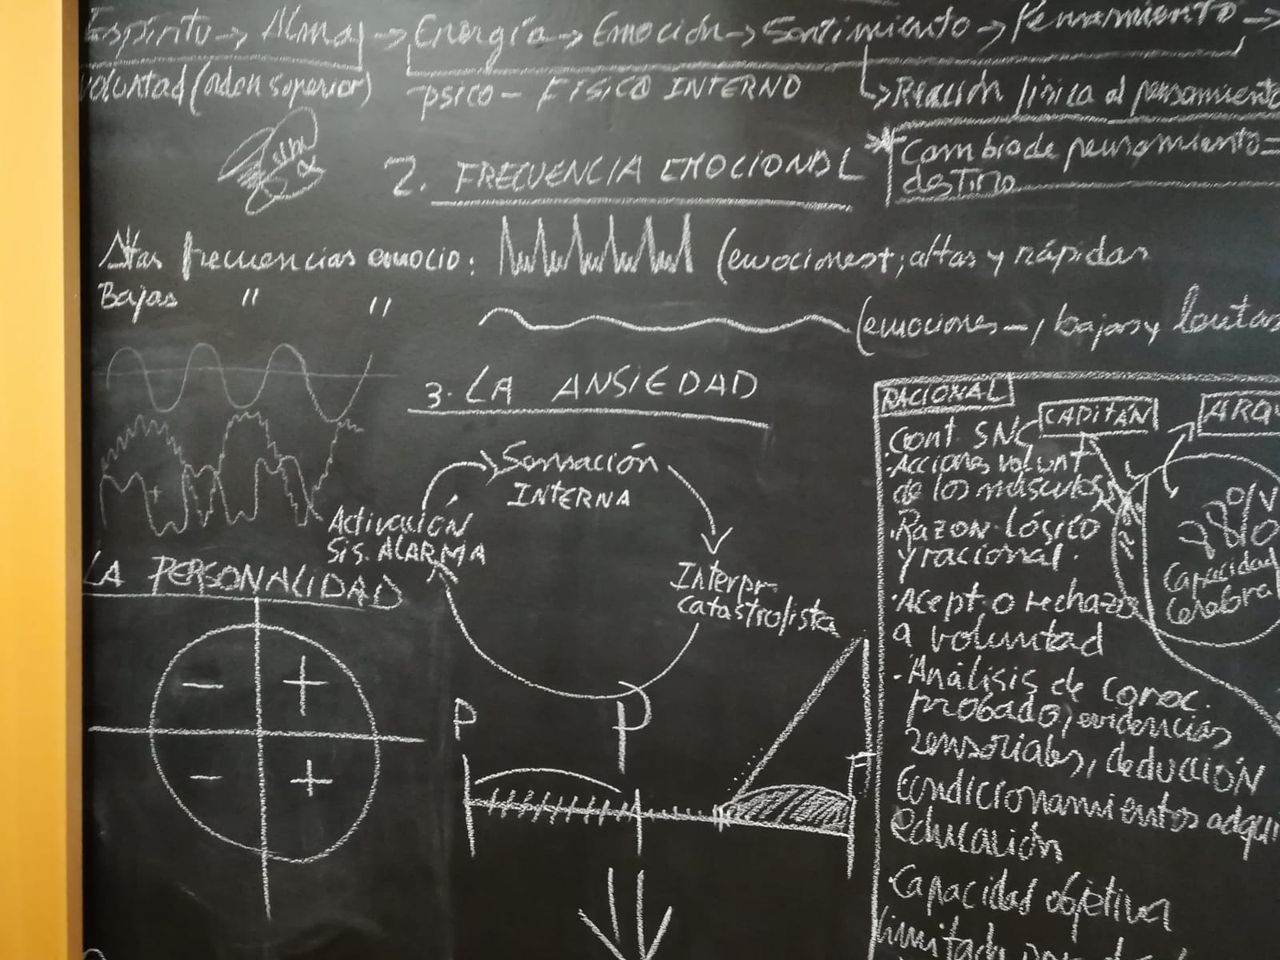 Espíritu → Alma → Energía → Emoción → Sentimiento → Pensamiento →
Voluntad (orden superior)
PSICO - FISICO INTERNO
Reacción física al pensamiento
2. FRECUENCIA EMOCIONAL
* Cambio de pensamiento =
destino
Altas frecuencias emocio:
(emociones +, altas y rápidas
Bajas " "
(emociones -, bajas y lentas
3. LA ANSIEDAD
Sensación
INTERNA
Activación
SIS. ALARMA
Interpr.
catastrofista
LA PERSONALIDAD
- +
- +
P
P
F
RACIONAL
CAPITÁN
ARQ
Cont SN
· Acciones volunt
de los músculos
· Razon lógico
y racional.
· Acept. o rechazo
a voluntad
· Análisis de conoc.
probado, evidencias
sensoriales, deducción
Condicionamientos adqui
educación
· Capacidad objetiva
limitada
Capacidad
Cerebral